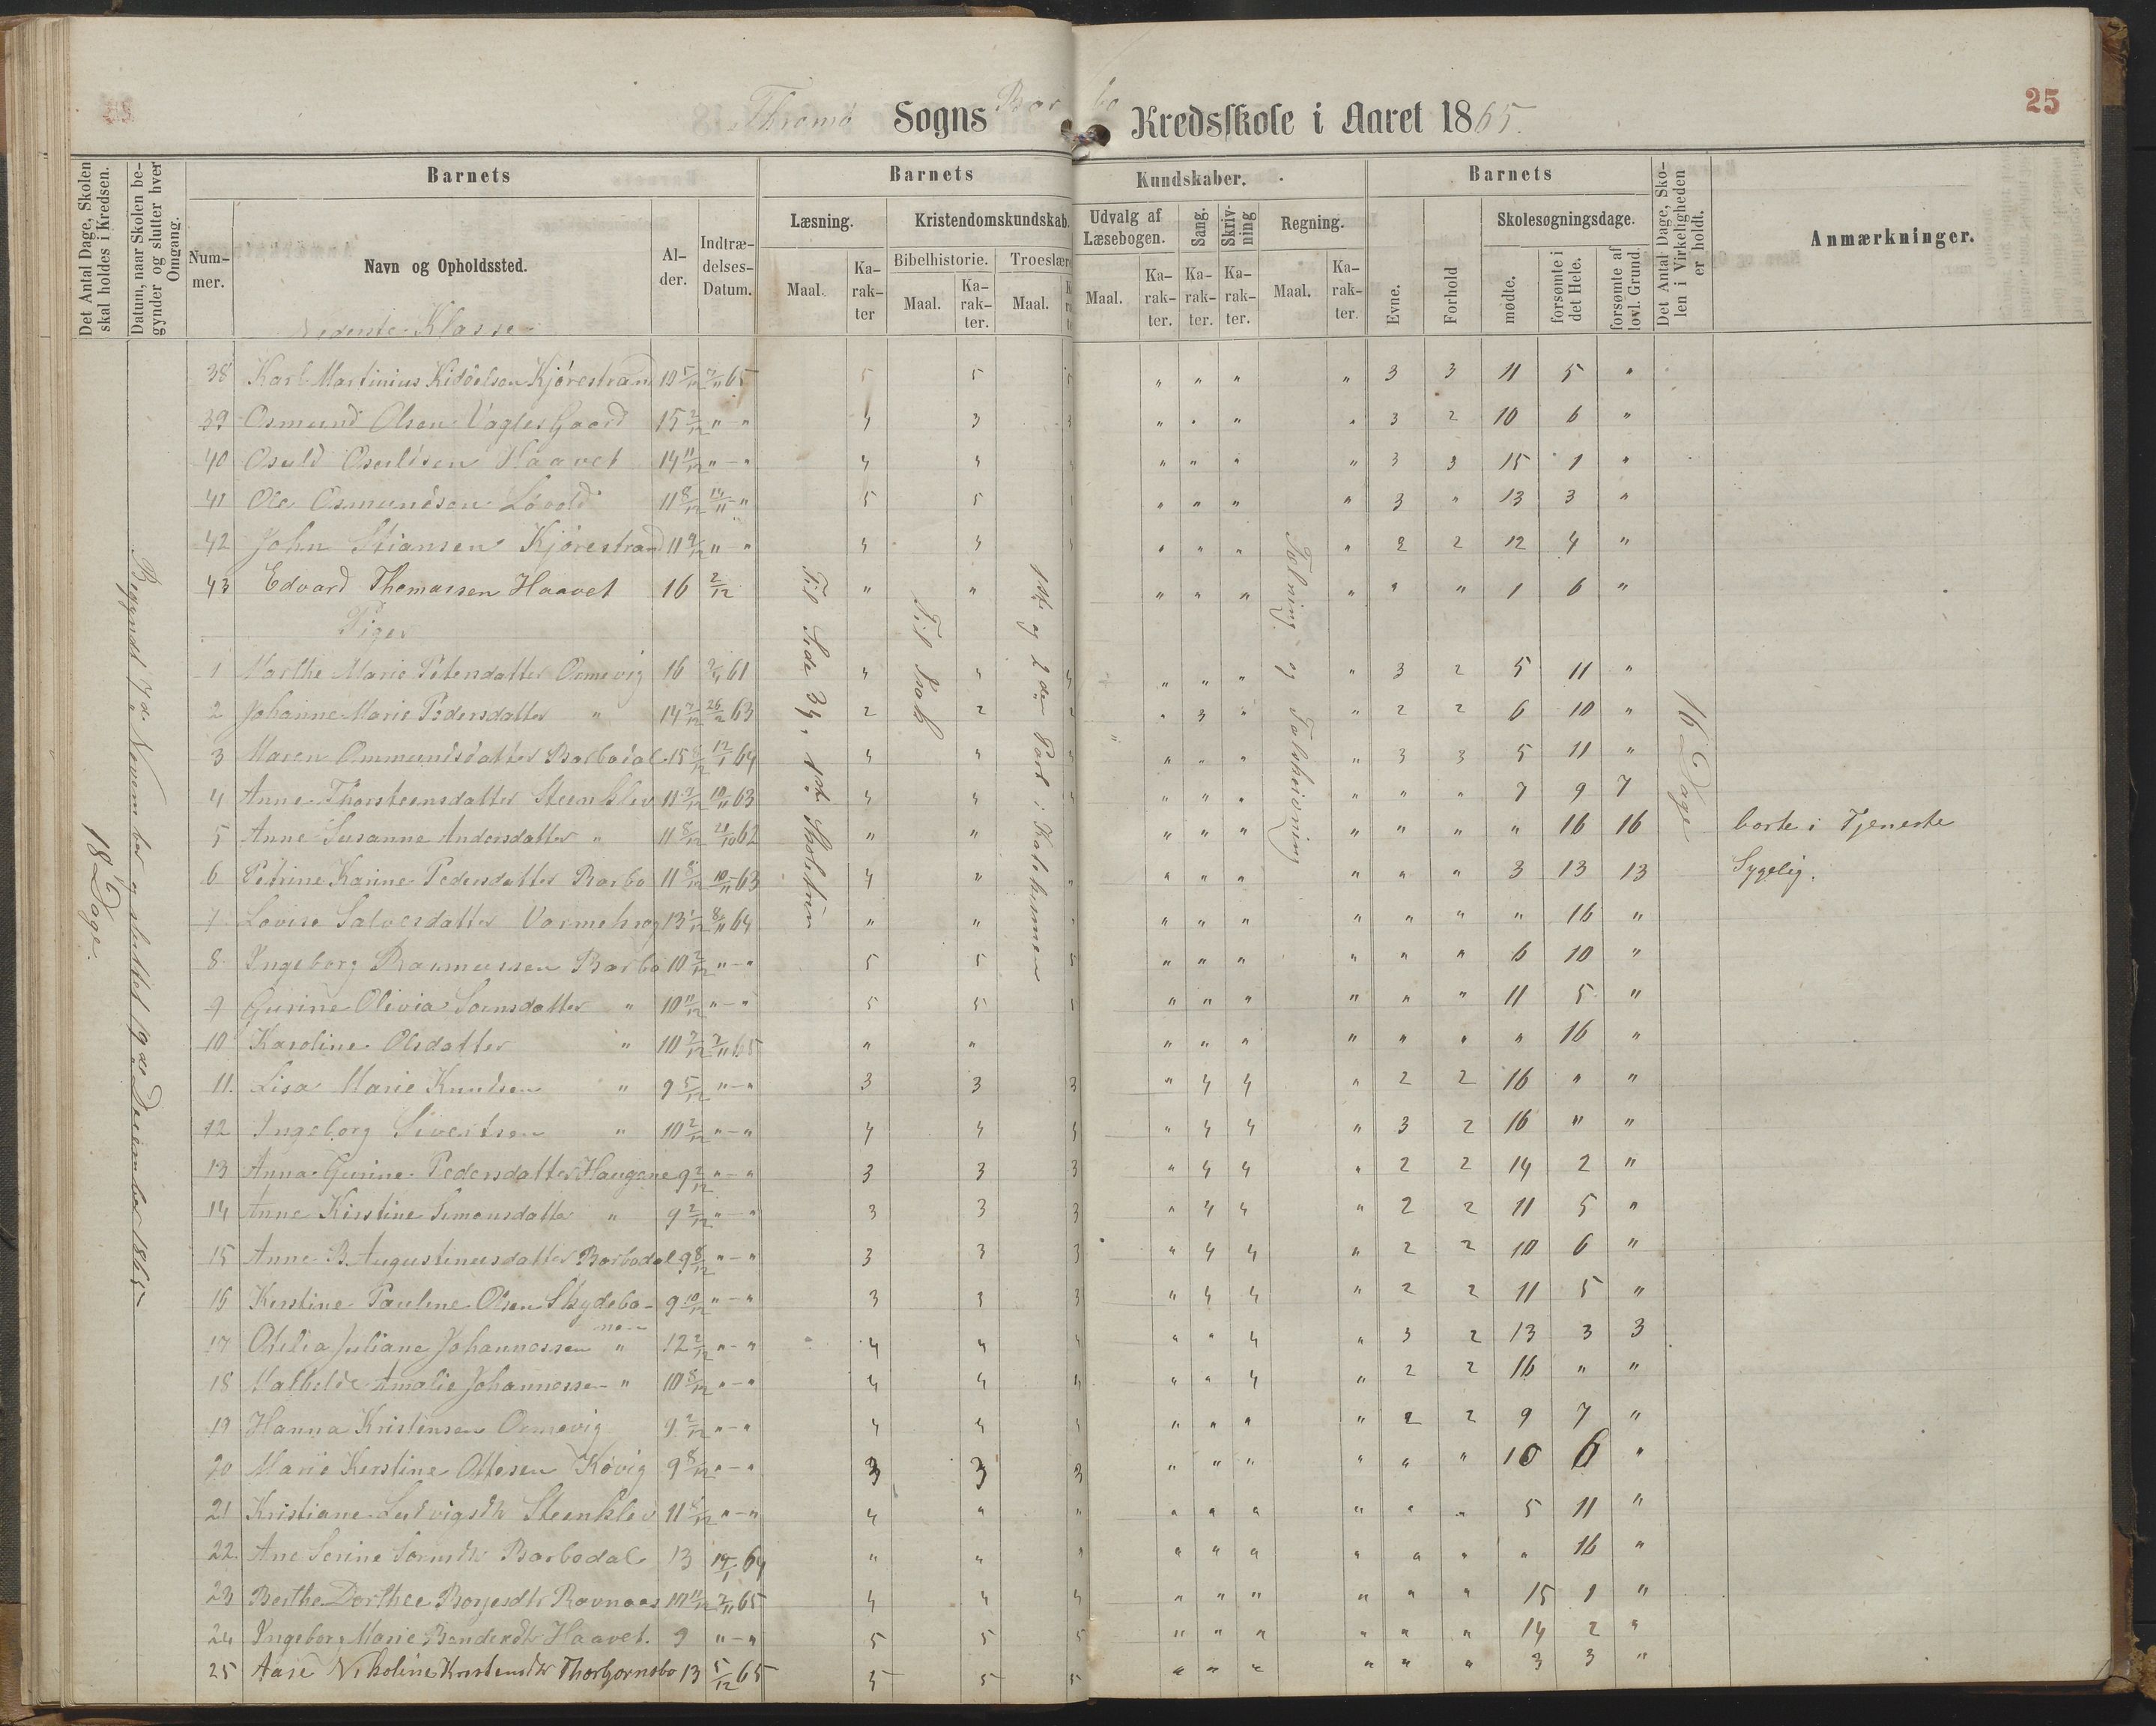 Thromø Sogns Barbo Kredsskole i Aaret 1865.
25
Det Antal Dage, Skolen skal holdes i Kredsen.
Datum, naar Skolen begynder og slutter hver Omgang.
Barnets
Barnets
Kundskaber.
Barnets
Det Antal Dage, Skolen i Virkeligheden er holdt.
Anmærkninger.
Nummer.
Navn og Opholdssted.
Alder.
Indtrædelses-Datum.
Læsning.
Kristendomskundskab.
Udvalg af Læsebogen.
Sang.
Skrivning
Regning.
Skolesøgningsdage.
Bibelhistorie.
Troeslære
Maal.
Karakter
Maal.
Karakter.
Maal.
Maal.
Karakter.
Karakter.
Karakter.
Maal.
Karakter.
Evne.
Forhold
mødte.
forsømte i det Hele.
forsømte af lovl. Grund.
Nederste Klasse
18 Dage.
Begyndt 7de November og sluttet 19de December 1865
Til Side 34, 1ste Skoletrin
Til Isak
1ste og 2den Part i Katekismen
Tælning og Talskrivning
16 Dage
38 Karl Martinius Kittelsen Kjørestrand 10 5/12 7/11 65 5 5 5 " " " " 3 3 11 5 "
39 Osmund Olsen Vagtes Gaard 15 2/12 "-" 4 3 3 " " " " 3 2 10 6 "
40 Osuld Osuldsen Haavet 14 11/12 "-" 4 4 4 " " " " 3 3 15 1 "
41 Ole Osmundsen Løvold 11 8/12 14/11 " 5 5 " " " " 3 " 13 3 "
42 John Stiansen Kjørestrand 11 9/12 "-" 4 4 4 " " " " 2 2 12 4 "
43 Edvard Thomassen Haavet 16 2/12 " " " " " " " " 1 6 "
Piger
1 Marthe Marie Petersdatter Ormevig 16 61 4 4 4 " " " " 3 2 5 11 "
2 Johanne Marie Pedersdatter " 14 7/12 26/2 63 2 2 2 " 3 " " 2 2 6 10 "
3 Maren Ommundsdatter Barbodal 15 8/12 12/1 64 4 4 4 " " " " 3 3 5 11 "
4 Anne Thorsteensdatter Steenklev 11 7/12 10/11 63 4 4 4 " " " " " " 7 9 7
5 Anne Susanne Andersdatter " 11 8/12 21/10 62 " " " " " " " " " 16 16 borte i Tjeneste
6 Petrine Karine Pedersdatter Barbo 11 8/12 10/11 63 4 " " " " " " " " 3 13 13 Sygelig.
7 Lovise Salvesdatter Vormekrog 13 1/12 8/11 64 " " " " " " " " " " 16 "
8 Ingeborg Rasmussen Barbo 10 2/12 "-" 5 5 5 " " " " " " 6 10 "
9 Gurine Olivia Sørensdatter " 10 11/12 "-" 5 5 5 " " " " " " 11 5 "
10 Karoline Olsdatter " 10 7/12 7/11 65 " " " " " " " " " 16 "
11. Lisa Marie Knudsen " 9 5/12 "-" 3 3 3 " 4 4 " 2 2 16 " "
12 Ingeborg Sivertsen " 10 2/12 "-" 4 4 4 " 4 4 " 3 2 16 " "
13 Anna Gurine Pedersdatter Haugene 9 2/12 "-" 3 3 3 " 4 4 " 2 2 14 2 "
14 Anne Kirstine Simonsdatter " 9 2/12 "-" 3 3 3 " 4 4 " 2 2 11 5 "
15 Anne B. Augustinusdatter Barbodal 9 8/12 "-" 3 3 3 " 4 4 " 2 2 10 6 "
16 Kirstine Pauline Olsen Skydebanen 9 10/12 "-" 3 3 3 " 4 4 " 2 2 11 5 "
17 Otilia Juliane Johannessen " 12 2/12 "-" 4 4 4 " " 4 " 3 2 13 3 3
18 Mathilde Amalie Johannessen " 10 8/12 "-" 4 4 4 " " 4 " 2 2 16 " "
19 Hanna Kristensen Ormevig 9 2/12 "-" 4 4 4 " " " " 2 2 9 7 "
20 Marie Kirstine Ottesen Køvig 9 8/12 "-" 3 3 3 " " " " " " 10 6 "
21 Kristiane Ludvigsdtr Steenklev 11 8/12 "-" 4 " " " " " " " " 5 11 "
22. Ane Serine Sørensdtr Barbodal 13 14/1 64 " " " " " " " " " " 16 "
23 Berthe Dorthee Børjesdtr Ravnaas 10 11/12 7/11 65 4 4 4 " " " " " " 15 1 "
24 Ingeborg Marie Bendiksdtr Haavet. 9 "-" 5 5 5 " " " " " " 14 2 "
25 Aase Nikoline Kristensdtr Thorbjørnsbo 13 5/12 65 5 5 5 " " " " " " 3 3 "